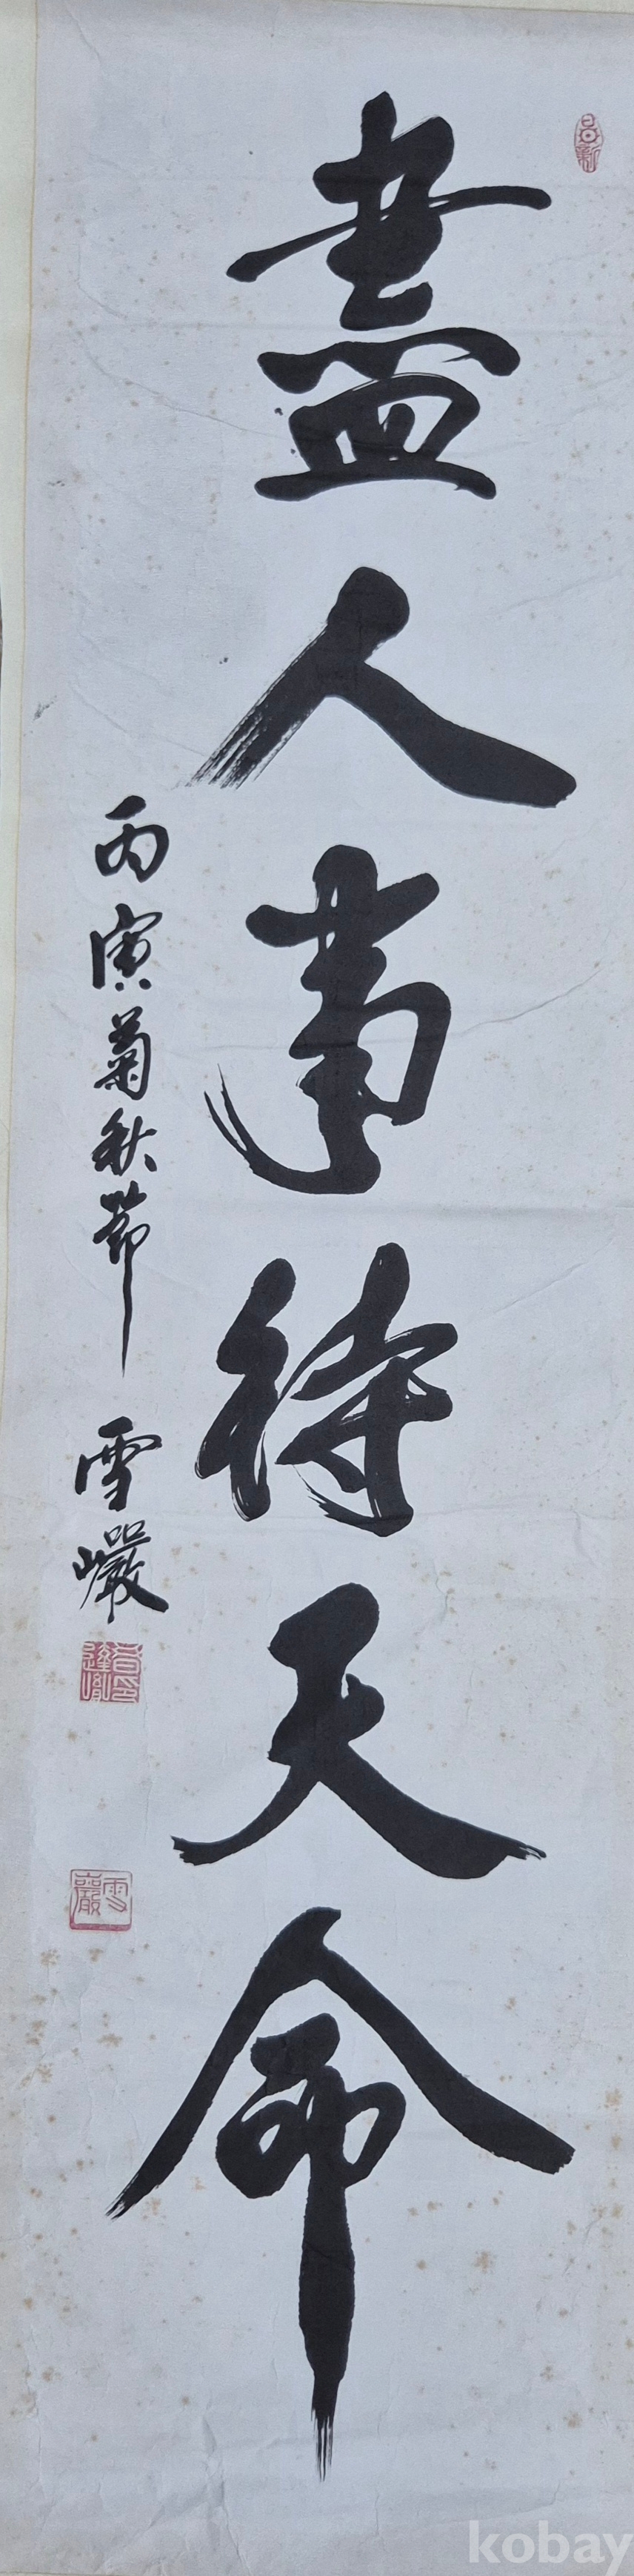 日新
盡人事待天命
丙寅菊秋節 雪巖
雪巖
kobay